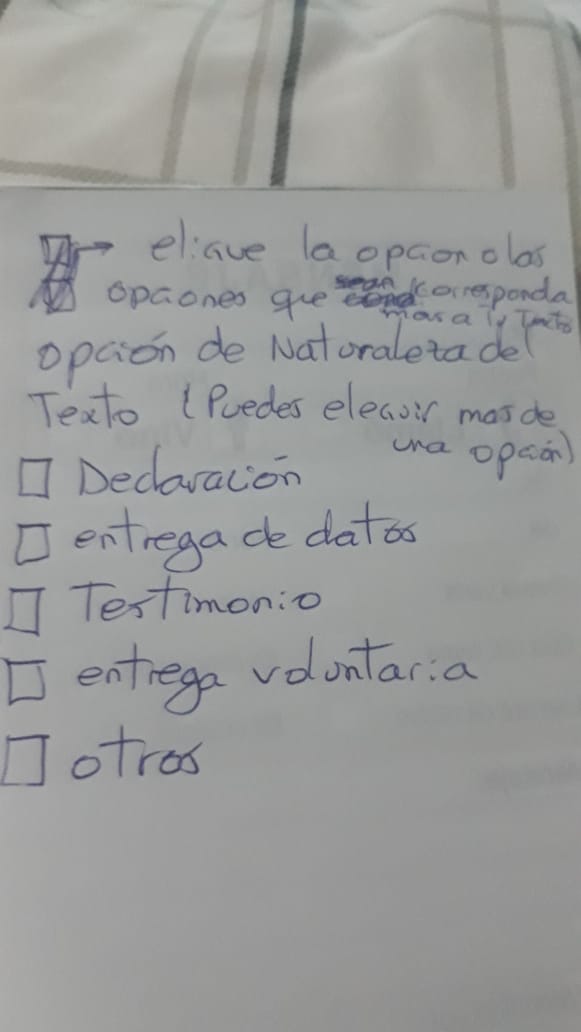 → eligue la opcion o las
opciones que corresponda
mas a tu Texto
opción de Naturaleza del
Texto (Puedes eleguir mas de
una opción)
□ Declaración
□ entrega de datos
□ Testimonio
□ entrega voluntaria
□ otros